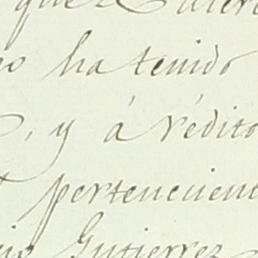 ha tenido
, y á rédito
pertenecient
Gutierrez